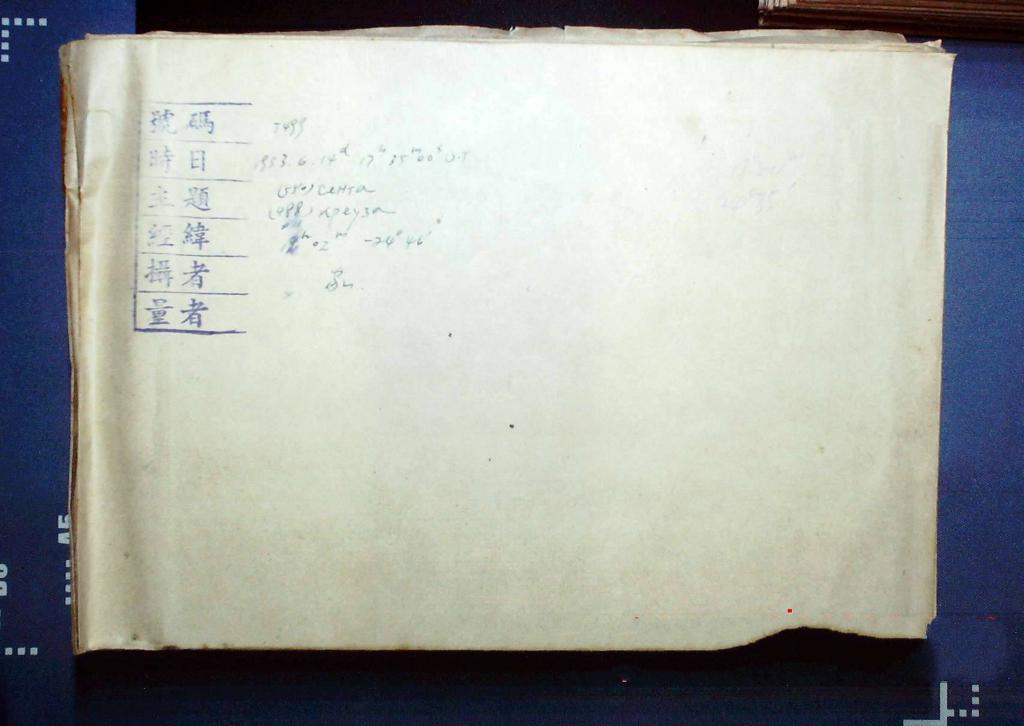 號碼 T499
時日 1953.6.14ᵈ 17ʰ 35ᵐ 00ˢ U.T
主題 (550) Сента
(488) Креуза
經緯 02ᵐ -24° 46'
攝者
量者